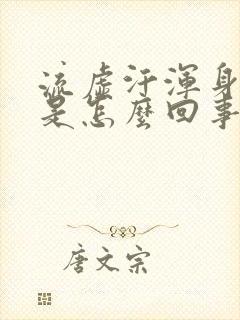 流虛汗渾身
是怎麼回事
唐文宗